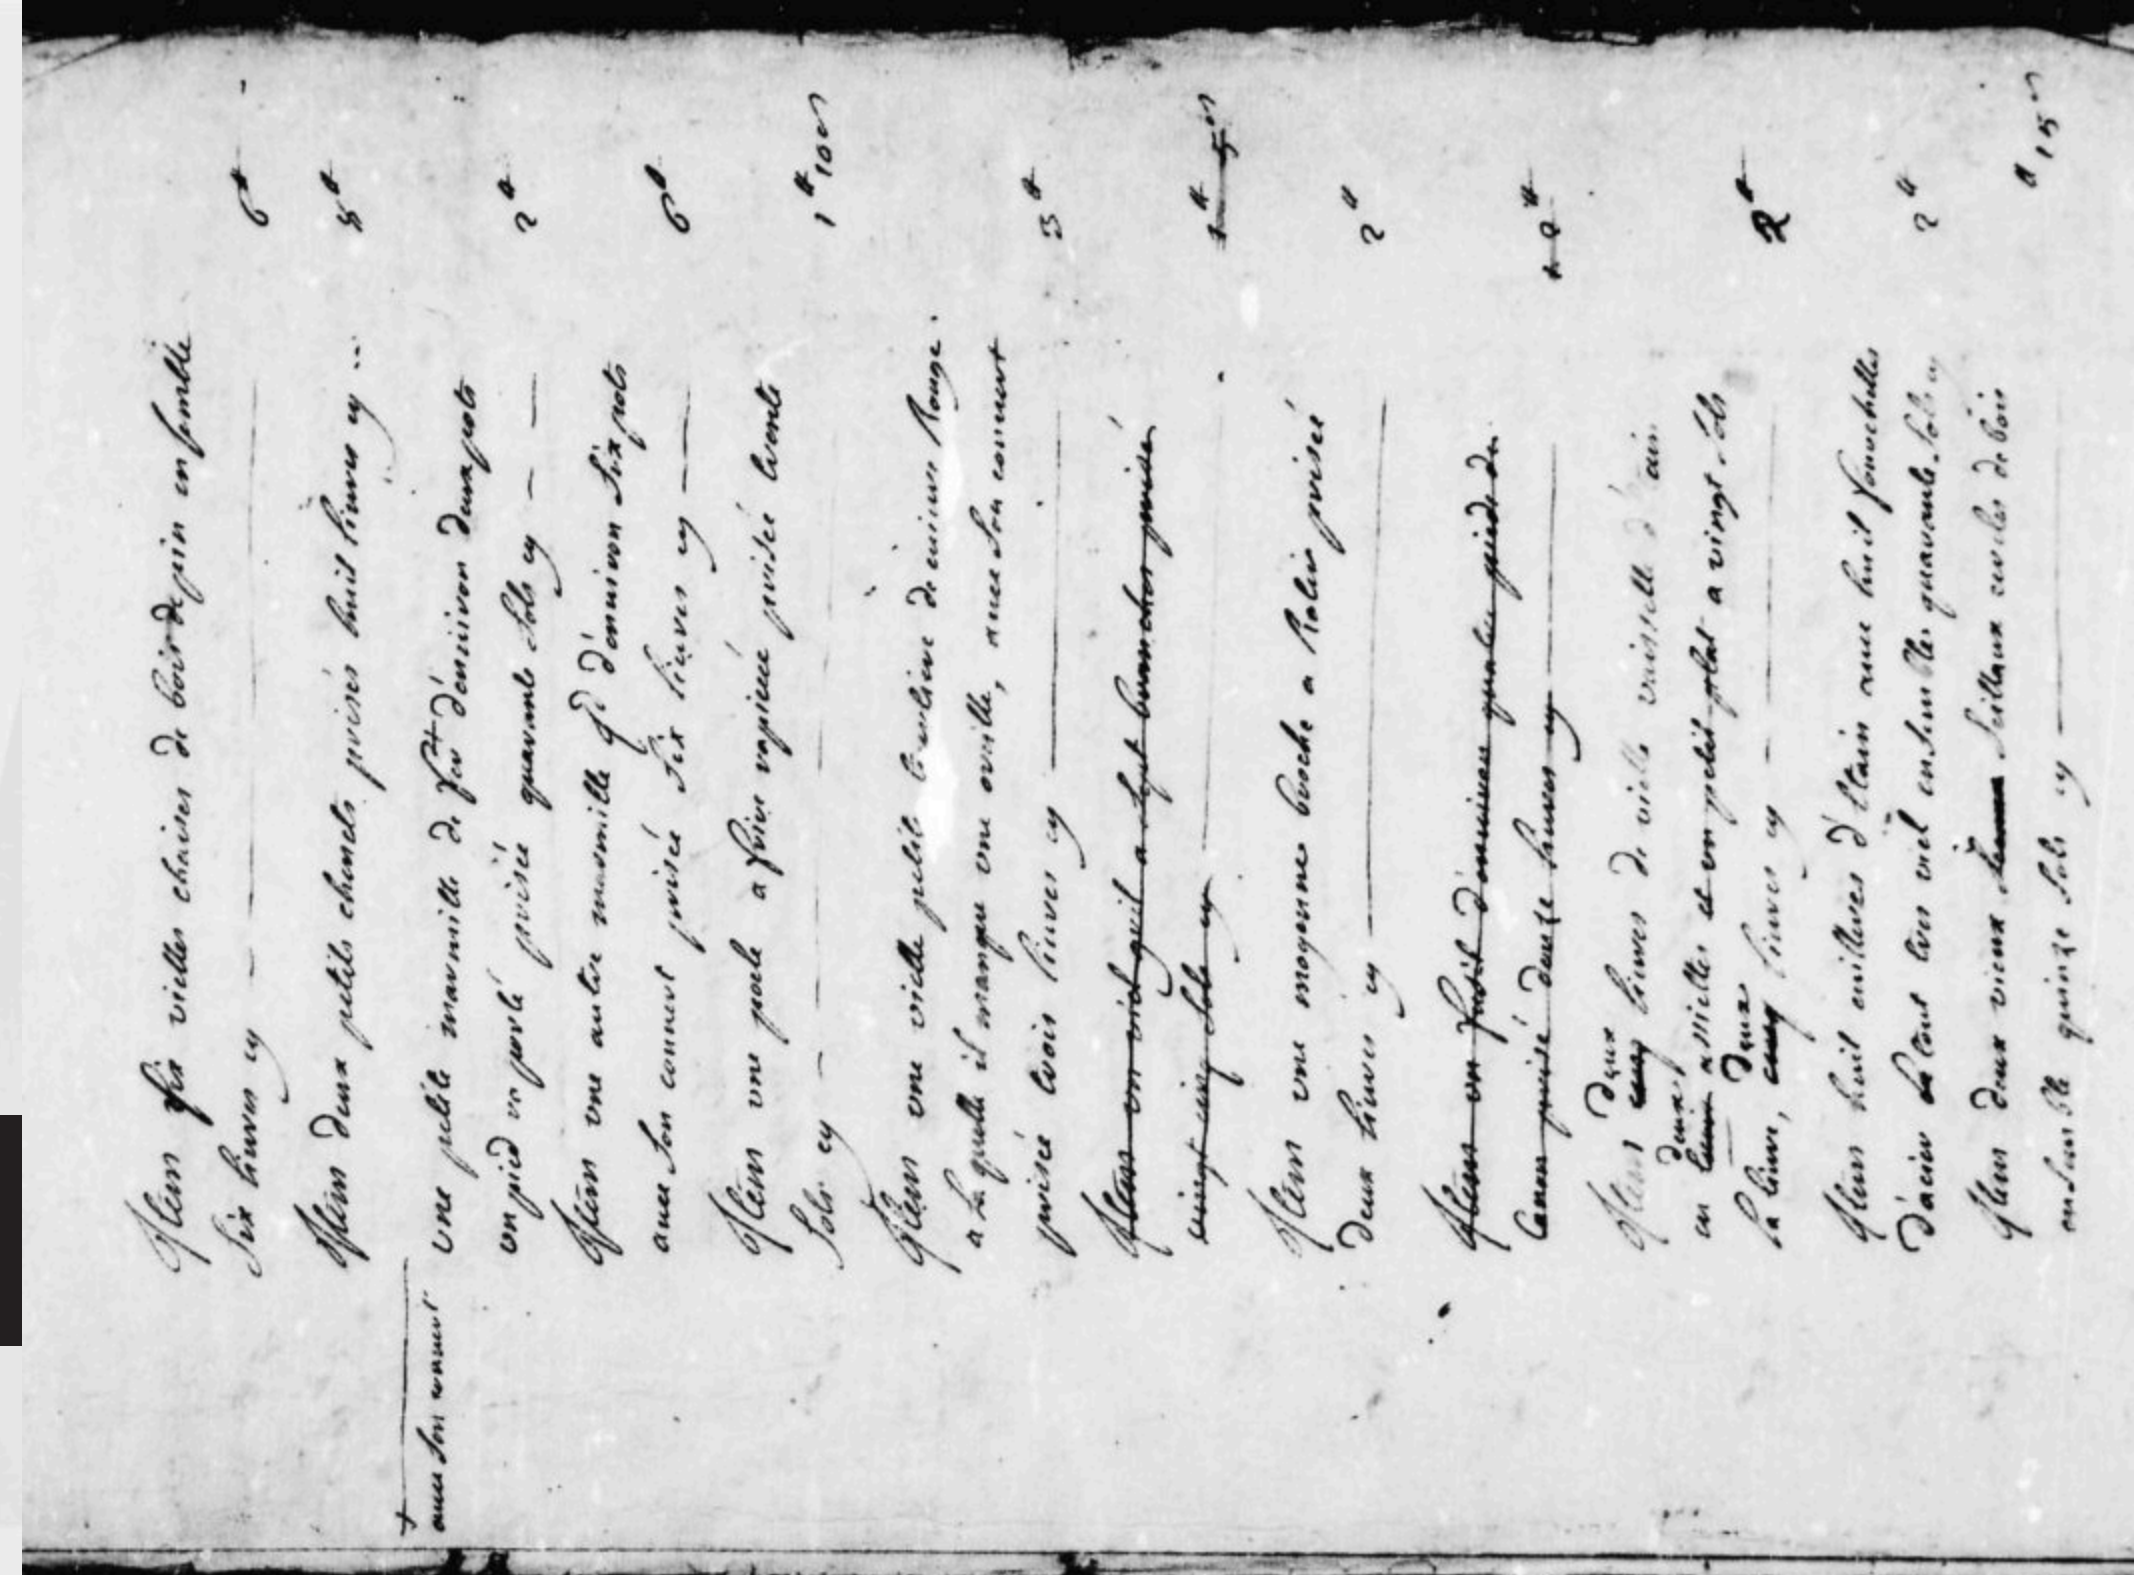 Item six vielles chaises de bois de pin ensemble
Six livres cy 6#
Item deux petits chenets prisés huit livres cy 8#
+ avec son couvert
une petite marmitte de fer + d'environ deux pots
un pied raporté prisée quarante Sols cy 2#
Item une autre marmitte d'environ Six pots
avec Son couvert prisée Six livres cy 6#
Item une poele a frire rapiecée prisée trente
Sols cy 1# 10s
Item une vielle petite de cuivre Rouge
a laquelle il manque une oreille, avec Son couvert
prisée trois livres cy 3#
Item un vieil a prisé
vingt cinq Sols cy 1# 5s
Item une moyenne broche a Rotir prisée
deux livres cy 2#
Item un fusil d'environ quatre pieds de
Canon prisé douze livres cy 12#
Item deux cinq livres de vielle vaisselle d'étain
en deux assiettes et un petit plat a vingt Sols
la livre, deux cinq livres cy 2#
Item huit cuilleres d'Etain avec huit fourchettes
d'acier le tout tres viel ensemble quarante Sols cy 2#
Item deux vieux Seillaux cerclés de bois
ensemble quinze Sols cy # 15s